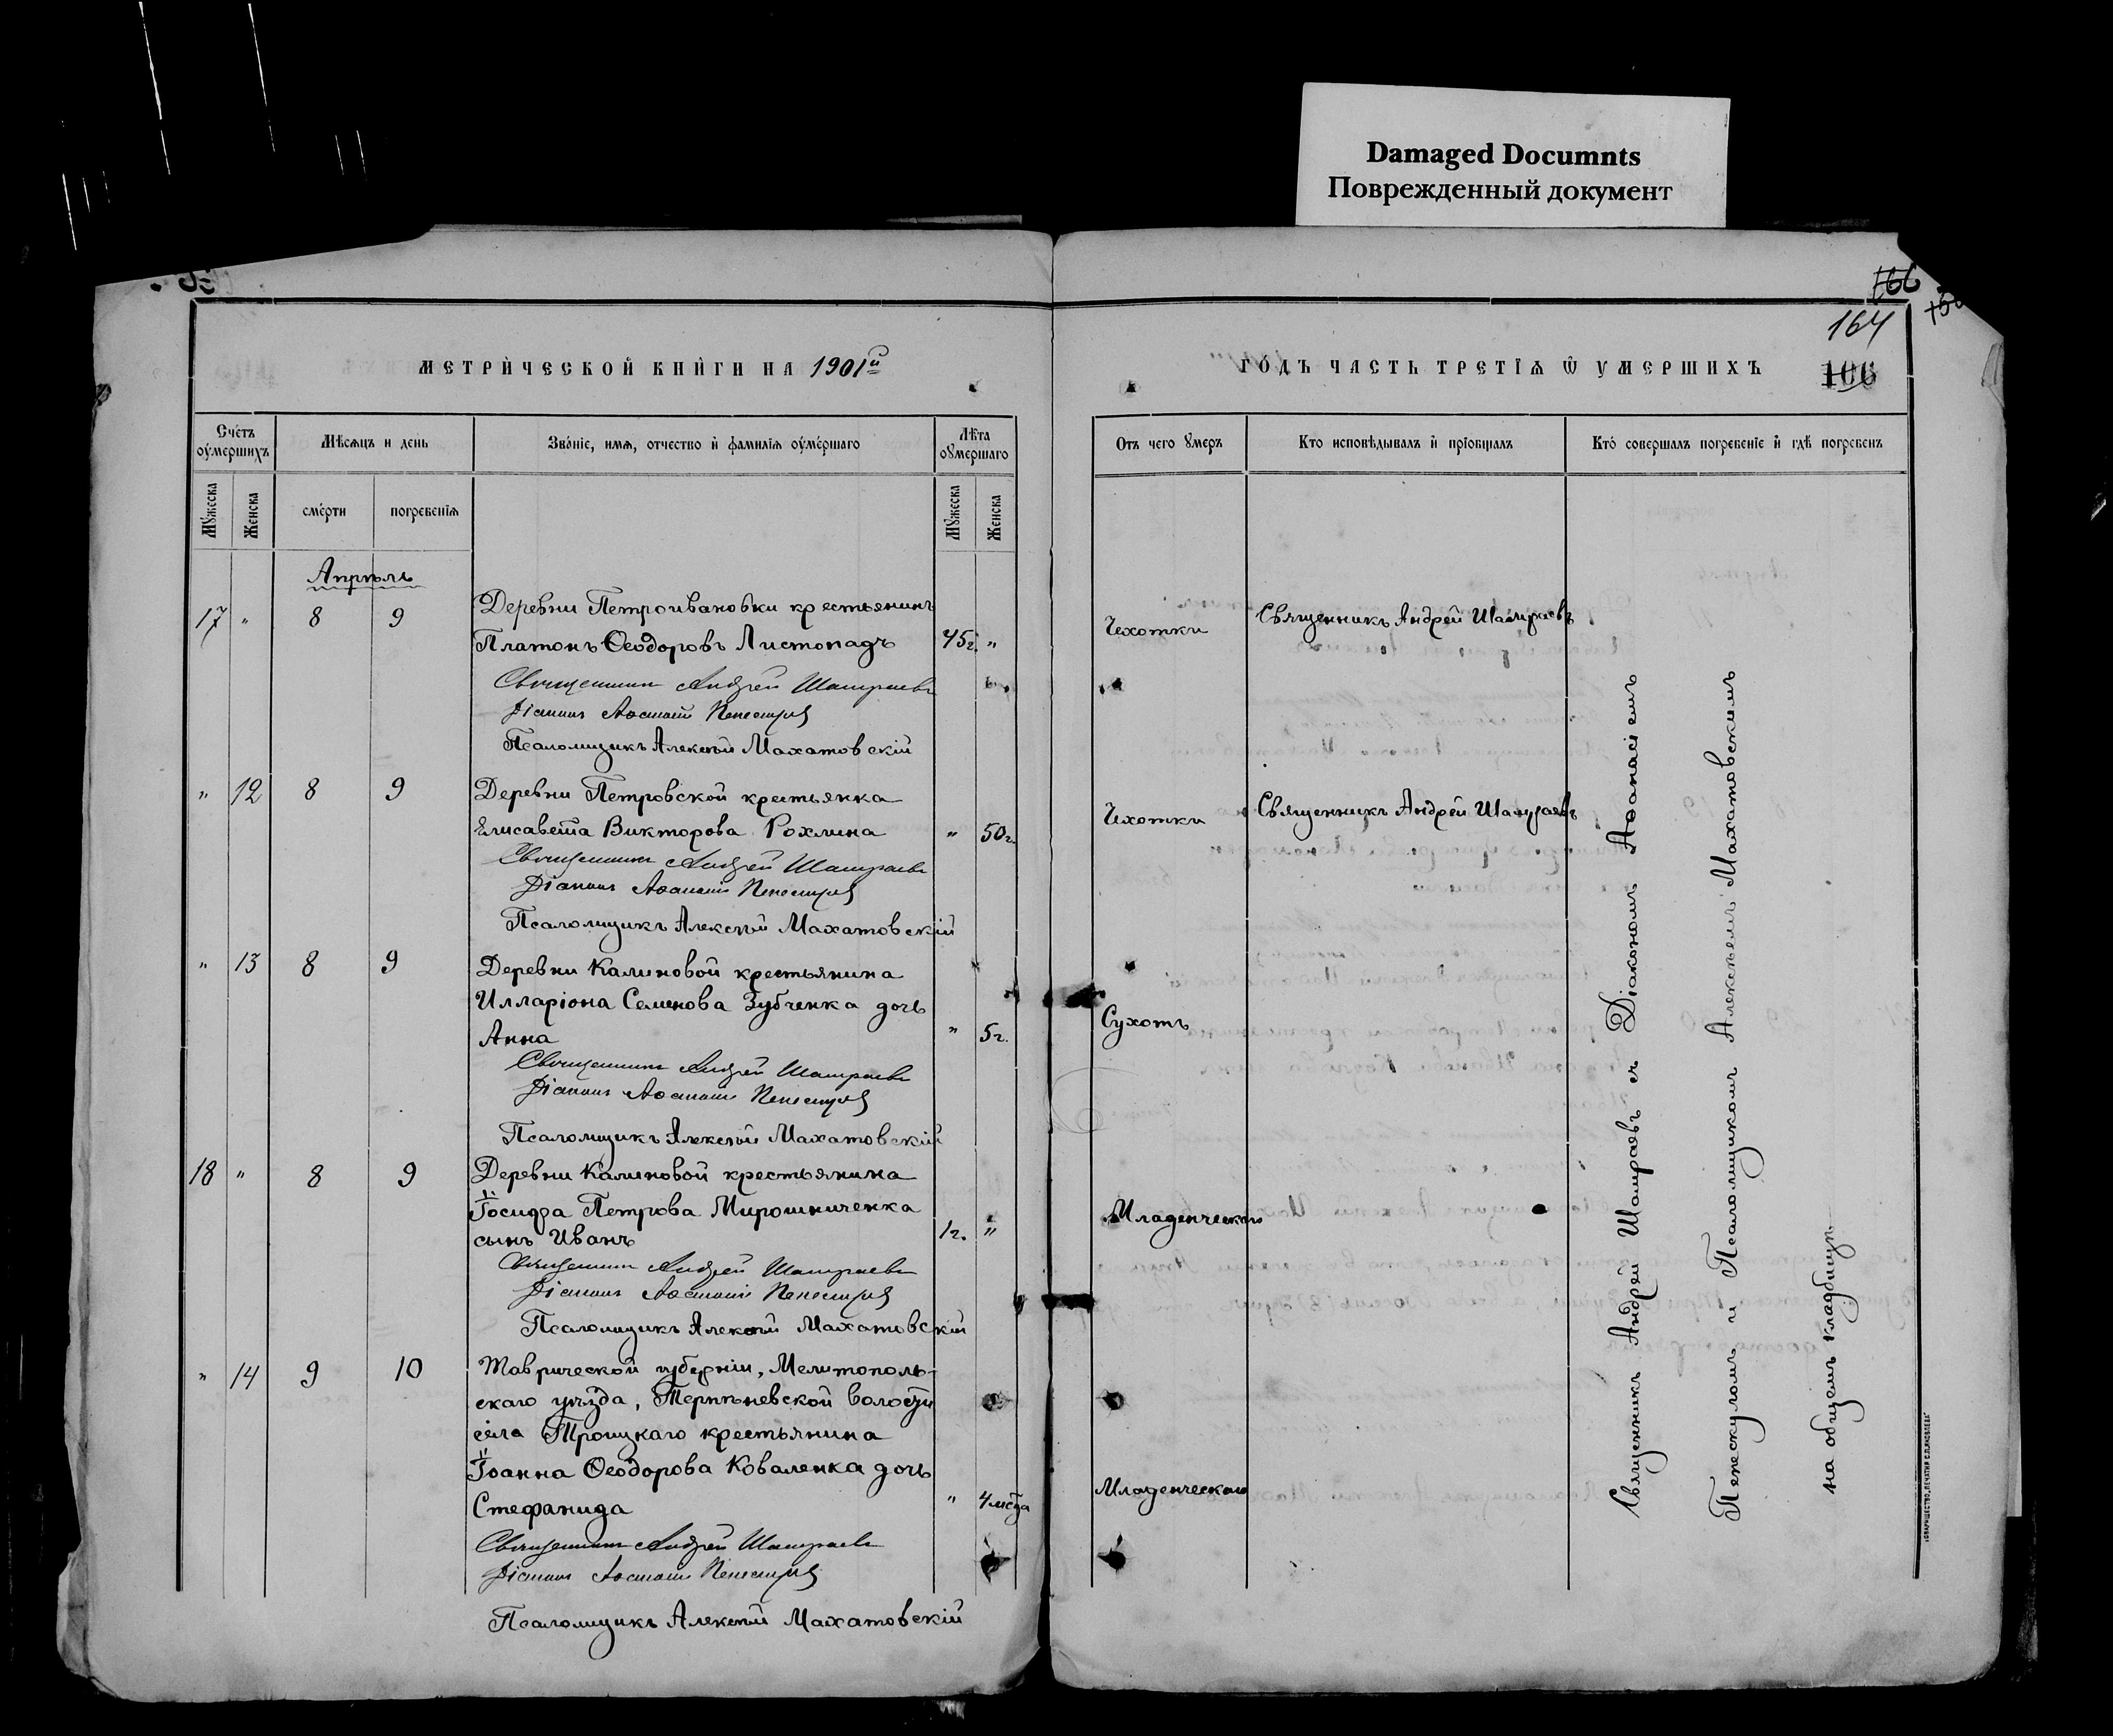 Damaged Documnts
Поврежденный документ
166
164
106
МЕТРИЧЕСКОЙ КНИГИ НА 1901й
ГОДЪ ЧАСТЬ ТРЕТІѦ Ѿ УМЕРШИХЪ
Счетъ оумершихъ
Мѣсяцъ и день
Званіе, имѧ, отчество и фамиліѧ оумершаго
Лѣта оумершаго
Отъ чего умеръ
Кто исповѣдывалъ и пріобщалъ
Кто совершалъ погребеніе и гдѣ погребенъ
Мужеска
Женска
смерти
погребеніѧ
Мужеска
Женска
Апрѣль
17 " 8 9 Деревни Петроивановки крестьянинъ
Платонъ Ѳеодоровъ Листопадъ 45г. " Чехотки Священникъ Андрей Шамраевъ
Священникъ Андрей Шамраевъ
Діаконъ Аѳанасій Пенескулъ
Псаломщикъ Алексѣй Махатовскій
" 12 8 9 Деревни Петровской крестьянка
Елисавета Викторова Рохлина " 50г. Чехотки Священникъ Андрей Шамраевъ
Священникъ Андрей Шамраевъ
Діаконъ Аѳанасій Пенескулъ
Псаломщикъ Алексѣй Махатовскій
" 13 8 9 Деревни Калиновой крестьянина
Илларіона Семенова Зубченка дочь
Анна " 5г. Сухотъ
Священникъ Андрей Шамраевъ
Діаконъ Аѳанасій Пенескулъ
Псаломщикъ Алексѣй Махатовскій
18 " 8 9 Деревни Калиновой крестьянина
Іосифа Петрова Мирошниченка
сынъ Иванъ 1г. " Младенческаго
Священникъ Андрей Шамраевъ
Діаконъ Аѳанасій Пенескулъ
Псаломщикъ Алексѣй Махатовскій
" 14 9 10 Таврической губерніи, Мелитополь-
скаго уѣзда, Терпѣневской волости
села Троицкаго крестьянина
Іоанна Ѳеодорова Коваленка дочь
Стефанида " 4 мѣсца Младенческаго
Священникъ Андрей Шамраевъ
Діаконъ Аѳанасій Пенескулъ
Псаломщикъ Алексѣй Махатовскій
Священникъ Андрей Шамраевъ съ Діакономъ Аѳанасіемъ
Пенескуломъ и Псаломщикомъ Алексѣемъ Махатовскимъ
на общемъ кладбищѣ